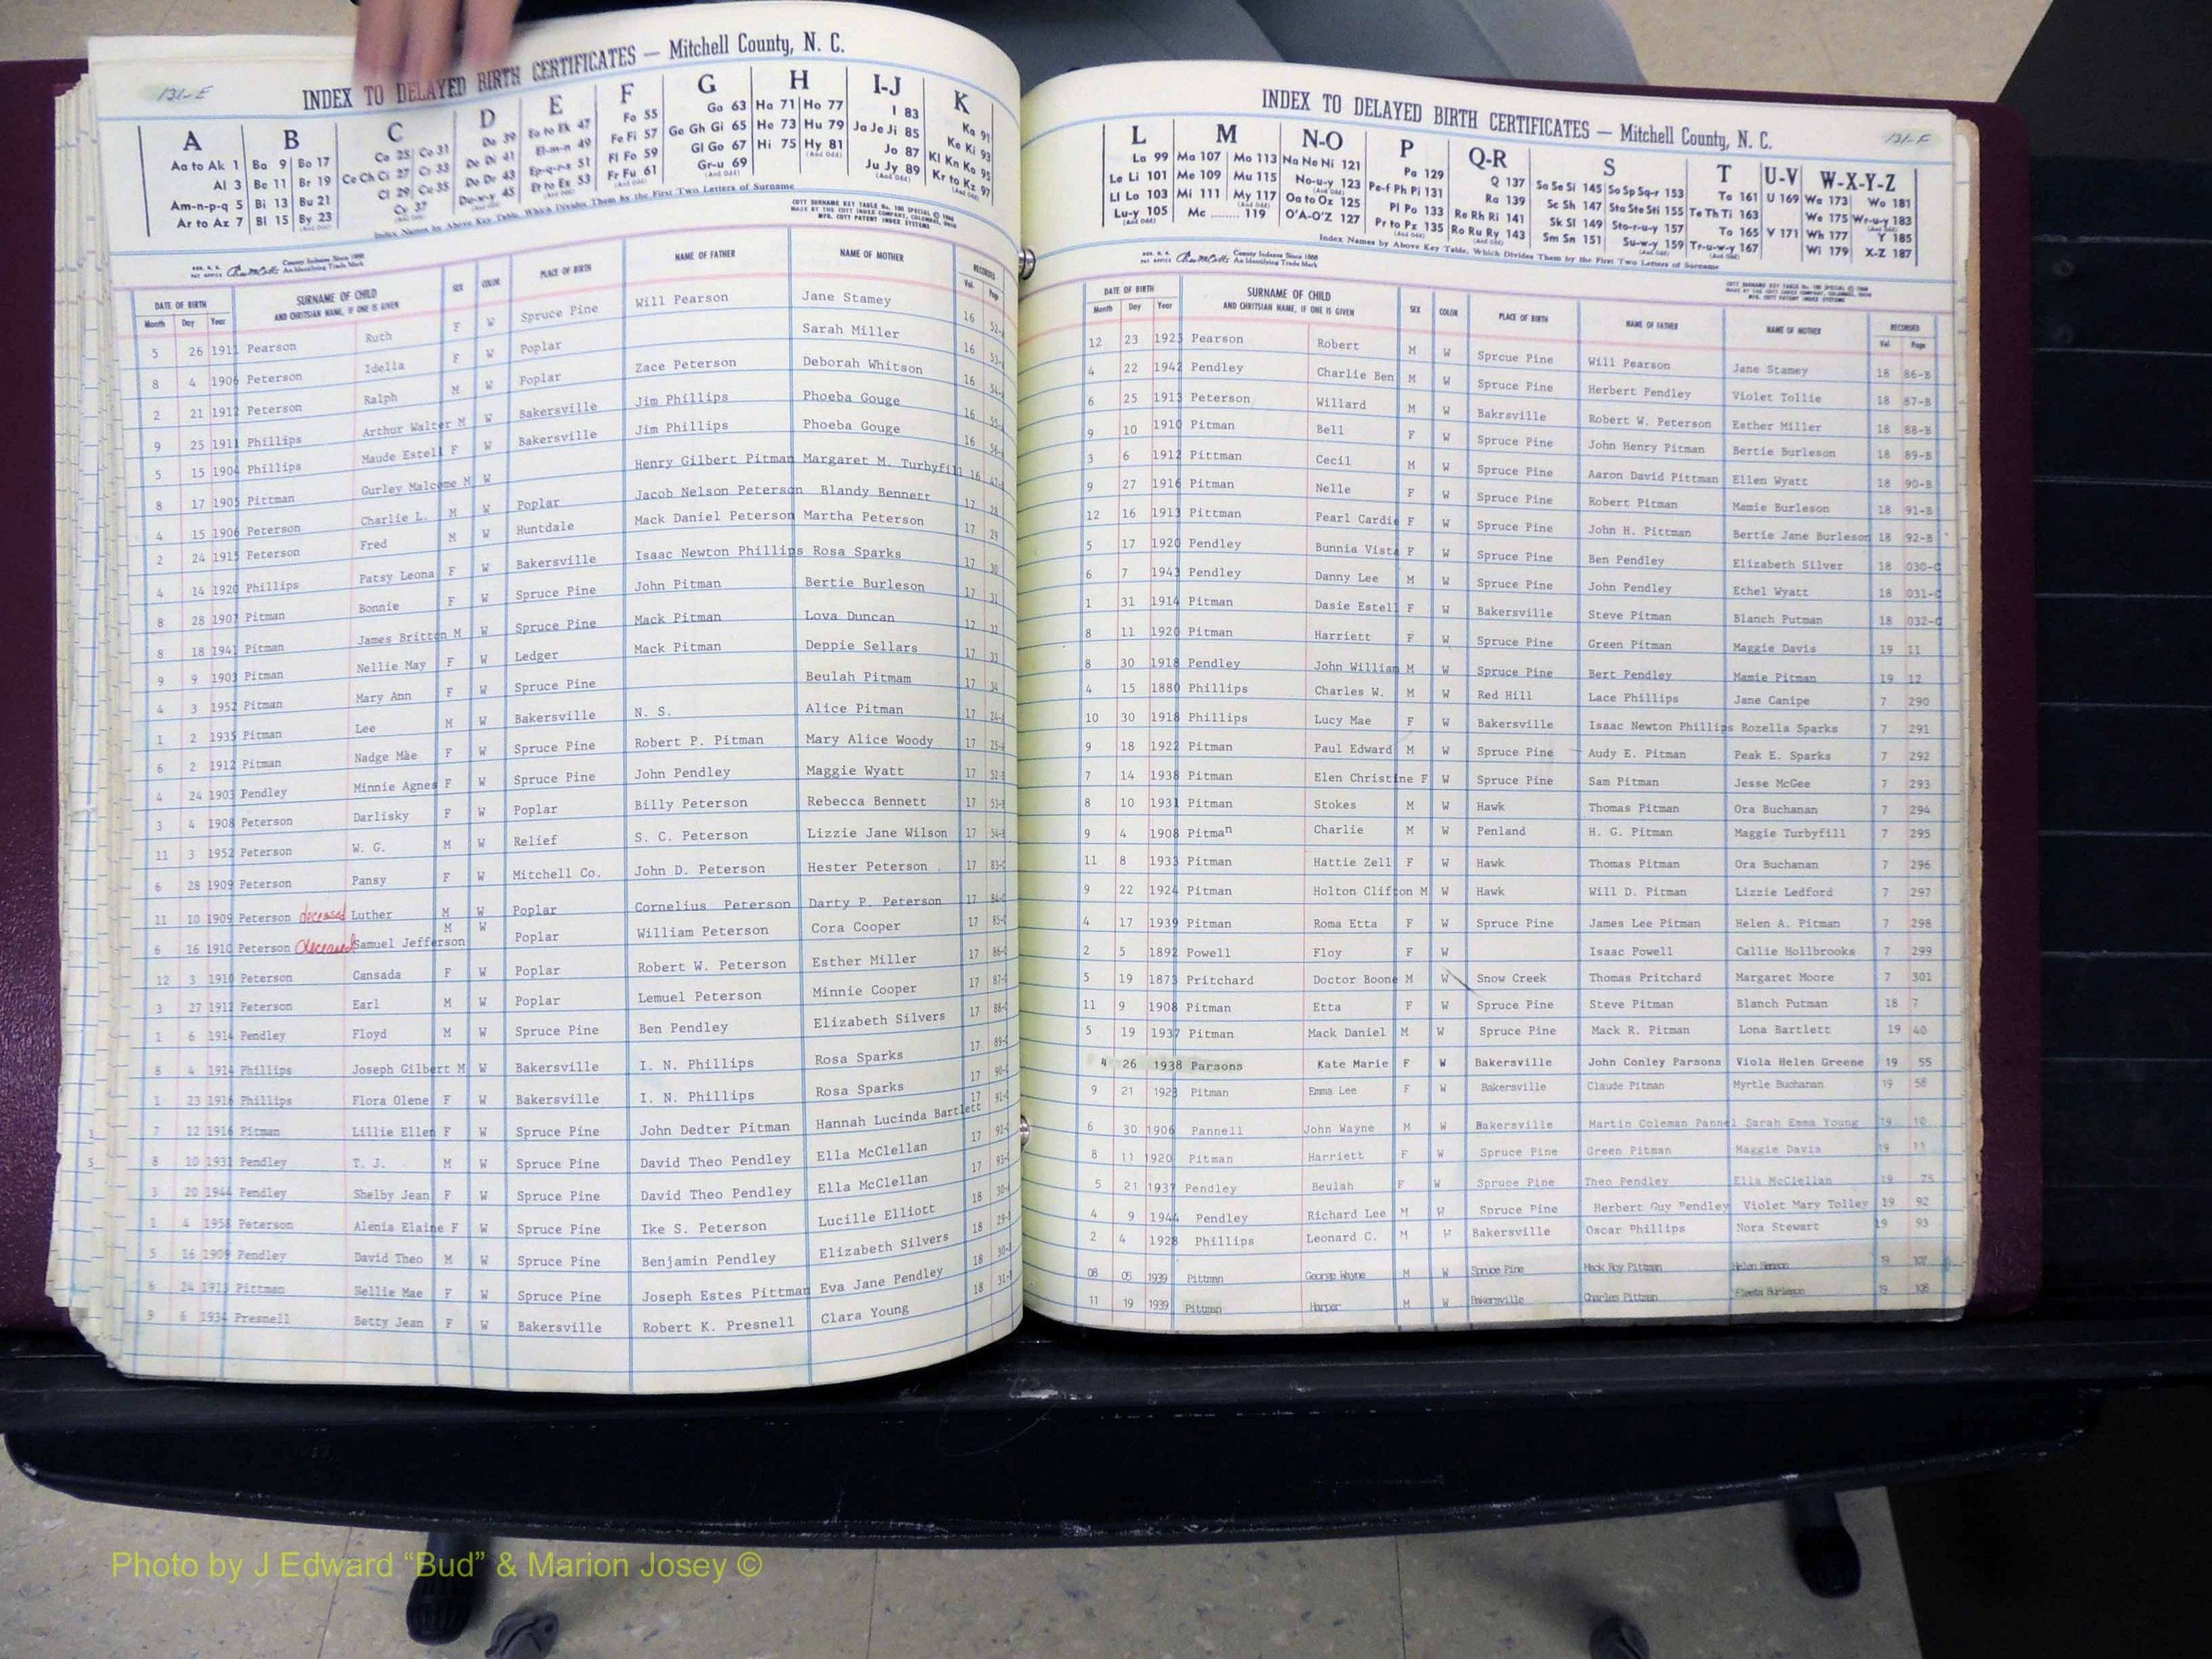 131-E
INDEX TO DELAYED BIRTH CERTIFICATES — Mitchell County, N. C.
A B C D E F G H I-J K
Aa to Ak 1 Ba 9 Bo 17 Ca 25 Co 31 Da 39 Ea to Ek 47 Fa 55 Ga 63 Ha 71 Ho 77 I 83 Ka 91
Al 3 Be 11 Br 19 Ce Ch Ci 27 Cr 33 De Di 41 El-m-n 49 Fe Fi 57 Ge Gh Gi 65 He 73 Hu 79 Ja Je Ji 85 Ke Ki 93
Am-n-p-q 5 Bi 13 Bu 21 Cl 29 Cu 35 Do Dr 43 Ep-q-r-s 51 Fl Fo 59 Gl Go 67 Hi 75 Hy 81 Jo 87 Kl Kn Ko 95
Ar to Az 7 Bl 15 By 23 Cy 37 Du-w-y 45 Et to Ez 53 Fr Fu 61 Gr-u 69 Ju Jy 89 Kr to Kz 97
Index Names by Above Key Table, Which Divides Them by the First Two Letters of Surname
DATE OF BIRTH SURNAME OF CHILD AND CHRITSIAN NAME, IF ONE IS GIVEN SEX COLOR PLACE OF BIRTH NAME OF FATHER NAME OF MOTHER RECORDED
Month Day Year Vol. Page
5 26 1911 Pearson Ruth F W Spruce Pine Will Pearson Jane Stamey 16
8 4 1906 Peterson Idella F W Poplar Sarah Miller 16
2 21 1912 Peterson Ralph M W Poplar Zace Peterson Deborah Whitson 16
9 25 1911 Phillips Arthur Walter M W Bakersville Jim Phillips Phoeba Gouge 16
5 15 1904 Phillips Maude Estell F W Bakersville Jim Phillips Phoeba Gouge 16
8 17 1905 Pittman Gurley Malcome M W Henry Gilbert Pitman Margaret M. Turbyfill 16
4 15 1906 Peterson Charlie L. M W Poplar Jacob Nelson Peterson Blandy Bennett 17 28
2 24 1915 Peterson Fred M W Huntdale Mack Daniel Peterson Martha Peterson 17 29
4 14 1920 Phillips Patsy Leona F W Bakersville Isaac Newton Phillips Rosa Sparks 17 30
8 28 1907 Pitman Bonnie F W Spruce Pine John Pitman Bertie Burleson 17 31
8 18 1941 Pitman James Britton M W Spruce Pine Mack Pitman Lova Duncan 17 32
9 9 1903 Pitman Nellie May F W Ledger Mack Pitman Deppie Sellars 17 33
4 3 1952 Pitman Mary Ann F W Spruce Pine Beulah Pitmam 17 34
1 2 1935 Pitman Lee M W Bakersville N. S. Alice Pitman 17
6 2 1912 Pitman Nadge Mae F W Spruce Pine Robert P. Pitman Mary Alice Woody 17
4 24 1903 Pendley Minnie Agnes F W Spruce Pine John Pendley Maggie Wyatt 17
3 4 1908 Peterson Darlisky F W Poplar Billy Peterson Rebecca Bennett 17
11 3 1952 Peterson W. G. M W Relief S. C. Peterson Lizzie Jane Wilson 17
6 28 1909 Peterson Pansy F W Mitchell Co. John D. Peterson Hester Peterson 17
11 10 1909 Peterson deceased Luther M W Poplar Cornelius Peterson Darty P. Peterson 17
6 16 1910 Peterson deceased Samuel Jefferson M W Poplar William Peterson Cora Cooper 17
12 3 1910 Peterson Cansada F W Poplar Robert W. Peterson Esther Miller 17
3 27 1912 Peterson Earl M W Poplar Lemuel Peterson Minnie Cooper 17
1 6 1914 Pendley Floyd M W Spruce Pine Ben Pendley Elizabeth Silvers 17
8 4 1914 Phillips Joseph Gilbert M W Bakersville I. N. Phillips Rosa Sparks 17
1 23 1916 Phillips Flora Olene F W Bakersville I. N. Phillips Rosa Sparks 17
7 12 1916 Pitman Lillie Ellen F W Spruce Pine John Dedter Pitman Hannah Lucinda Bartlett 17
8 10 1931 Pendley T. J. M W Spruce Pine David Theo Pendley Ella McClellan 17
3 20 1944 Pendley Shelby Jean F W Spruce Pine David Theo Pendley Ella McClellan 18
1 4 1958 Peterson Alenia Elaine F W Spruce Pine Ike S. Peterson Lucille Elliott 18
5 16 1909 Pendley David Theo M W Spruce Pine Benjamin Pendley Elizabeth Silvers 18
6 24 1913 Pittman Nellie Mae F W Spruce Pine Joseph Estes Pittman Eva Jane Pendley 18
9 6 1934 Presnell Betty Jean F W Bakersville Robert K. Presnell Clara Young
131-F
INDEX TO DELAYED BIRTH CERTIFICATES — Mitchell County, N. C.
L M N-O P Q-R S T U-V W-X-Y-Z
La 99 Ma 107 Mo 113 Na Ne Ni 121 Pa 129 Q 137 Sa Se Si 145 So Sp Sq-r 153 Ta 161 U 169 Wa 173 Wo 181
Le Li 101 Me 109 Mu 115 No-u-y 123 Pe-f Ph Pi 131 Ra 139 Sc Sh 147 Sta Ste Sti 155 Te Th Ti 163 We 175 Wr-u-y 183
Ll Lo 103 Mi 111 My 117 Oa to Oz 125 Pl Po 133 Re Rh Ri 141 Sk Sl 149 Sto-r-u-y 157 To 165 V 171 Wh 177 Y 185
Lu-y 105 Mc 119 O'A-O'Z 127 Pr to Pz 135 Ro Ru Ry 143 Sm Sn 151 Su-w-y 159 Tr-u-w-y 167 Wi 179 X-Z 187
Index Names by Above Key Table, Which Divides Them by the First Two Letters of Surname
DATE OF BIRTH SURNAME OF CHILD AND CHRITSIAN NAME, IF ONE IS GIVEN SEX COLOR PLACE OF BIRTH NAME OF FATHER NAME OF MOTHER RECORDED
Month Day Year Vol Page
12 23 1923 Pearson Robert M W Sprcue Pine Will Pearson Jane Stamey 18 86-B
4 22 1942 Pendley Charlie Ben M W Spruce Pine Herbert Pendley Violet Tollie 18 87-B
6 25 1913 Peterson Willard M W Bakrsville Robert W. Peterson Esther Miller 18 88-B
9 10 1910 Pitman Bell F W Spruce Pine John Henry Pitman Bertie Burleson 18 89-B
3 6 1912 Pittman Cecil M W Spruce Pine Aaron David Pittman Ellen Wyatt 18 90-B
9 27 1916 Pitman Nelle F W Spruce Pine Robert Pitman Mamie Burleson 18 91-B
12 16 1913 Pittman Pearl Cardie F W Spruce Pine John H. Pittman Bertie Jane Burleson 18 92-B
5 17 1920 Pendley Bunnia Vista F W Spruce Pine Ben Pendley Elizabeth Silver 18 030-C
6 7 1943 Pendley Danny Lee M W Spruce Pine John Pendley Ethel Wyatt 18 031-C
1 31 1914 Pitman Dasie Estell F W Bakersville Steve Pitman Blanch Putman 18 032-C
8 11 1920 Pitman Harriett F W Spruce Pine Green Pitman Maggie Davis 19 11
8 30 1918 Pendley John William M W Spruce Pine Bert Pendley Mamie Pitman 19 12
4 15 1880 Phillips Charles W. M W Red Hill Lace Phillips Jane Canipe 7 290
10 30 1918 Phillips Lucy Mae F W Bakersville Isaac Newton Phillips Rozella Sparks 7 291
9 18 1922 Pitman Paul Edward M W Spruce Pine Audy E. Pitman Peak E. Sparks 7 292
7 14 1938 Pitman Elen Christine F W Spruce Pine Sam Pitman Jesse McGee 7 293
8 10 1931 Pitman Stokes M W Hawk Thomas Pitman Ora Buchanan 7 294
9 4 1908 Pitman Charlie M W Penland H. G. Pitman Maggie Turbyfill 7 295
11 8 1933 Pitman Hattie Zell F W Hawk Thomas Pitman Ora Buchanan 7 296
9 22 1924 Pitman Holton Clifton M W Hawk Will D. Pitman Lizzie Ledford 7 297
4 17 1939 Pitman Roma Etta F W Spruce Pine James Lee Pitman Helen A. Pitman 7 298
2 5 1892 Powell Floy F W Isaac Powell Callie Hollbrooks 7 299
5 19 1873 Pritchard Doctor Boone M W Snow Creek Thomas Pritchard Margaret Moore 7 301
11 9 1908 Pitman Etta F W Spruce Pine Steve Pitman Blanch Putman 18 7
5 19 1937 Pitman Mack Daniel M W Spruce Pine Mack R. Pitman Lona Bartlett 19 40
4 26 1938 Parsons Kate Marie F W Bakersville John Conley Parsons Viola Helen Greene 19 55
9 21 1923 Pitman Emma Lee F W Bakersville Claude Pitman Myrtle Buchanan 19 58
6 30 1906 Pannell John Wayne M W Bakersville Martin Coleman Pannel Sarah Emma Young 19 10
8 11 1920 Pitman Harriett F W Spruce Pine Green Pitman Maggie Davis 19 11
5 21 1937 Pendley Beulah F W Spruce Pine Theo Pendley Ella McClellan 19 75
4 9 1944 Pendley Richard Lee M W Spruce Pine Herbert Guy Pendley Violet Mary Tolley 19 92
2 4 1928 Phillips Leonard C. M W Bakersville Oscar Phillips Nora Stewart 19 93
08 05 1939 Pittman George Wayne M W Spruce Pine Mack Roy Pittman Helen 19 107
11 19 1939 Pittman Harper M W Bakersville Charles Pittman Fleeta Burleson 19 108
Photo by J Edward “Bud” & Marion Josey ©